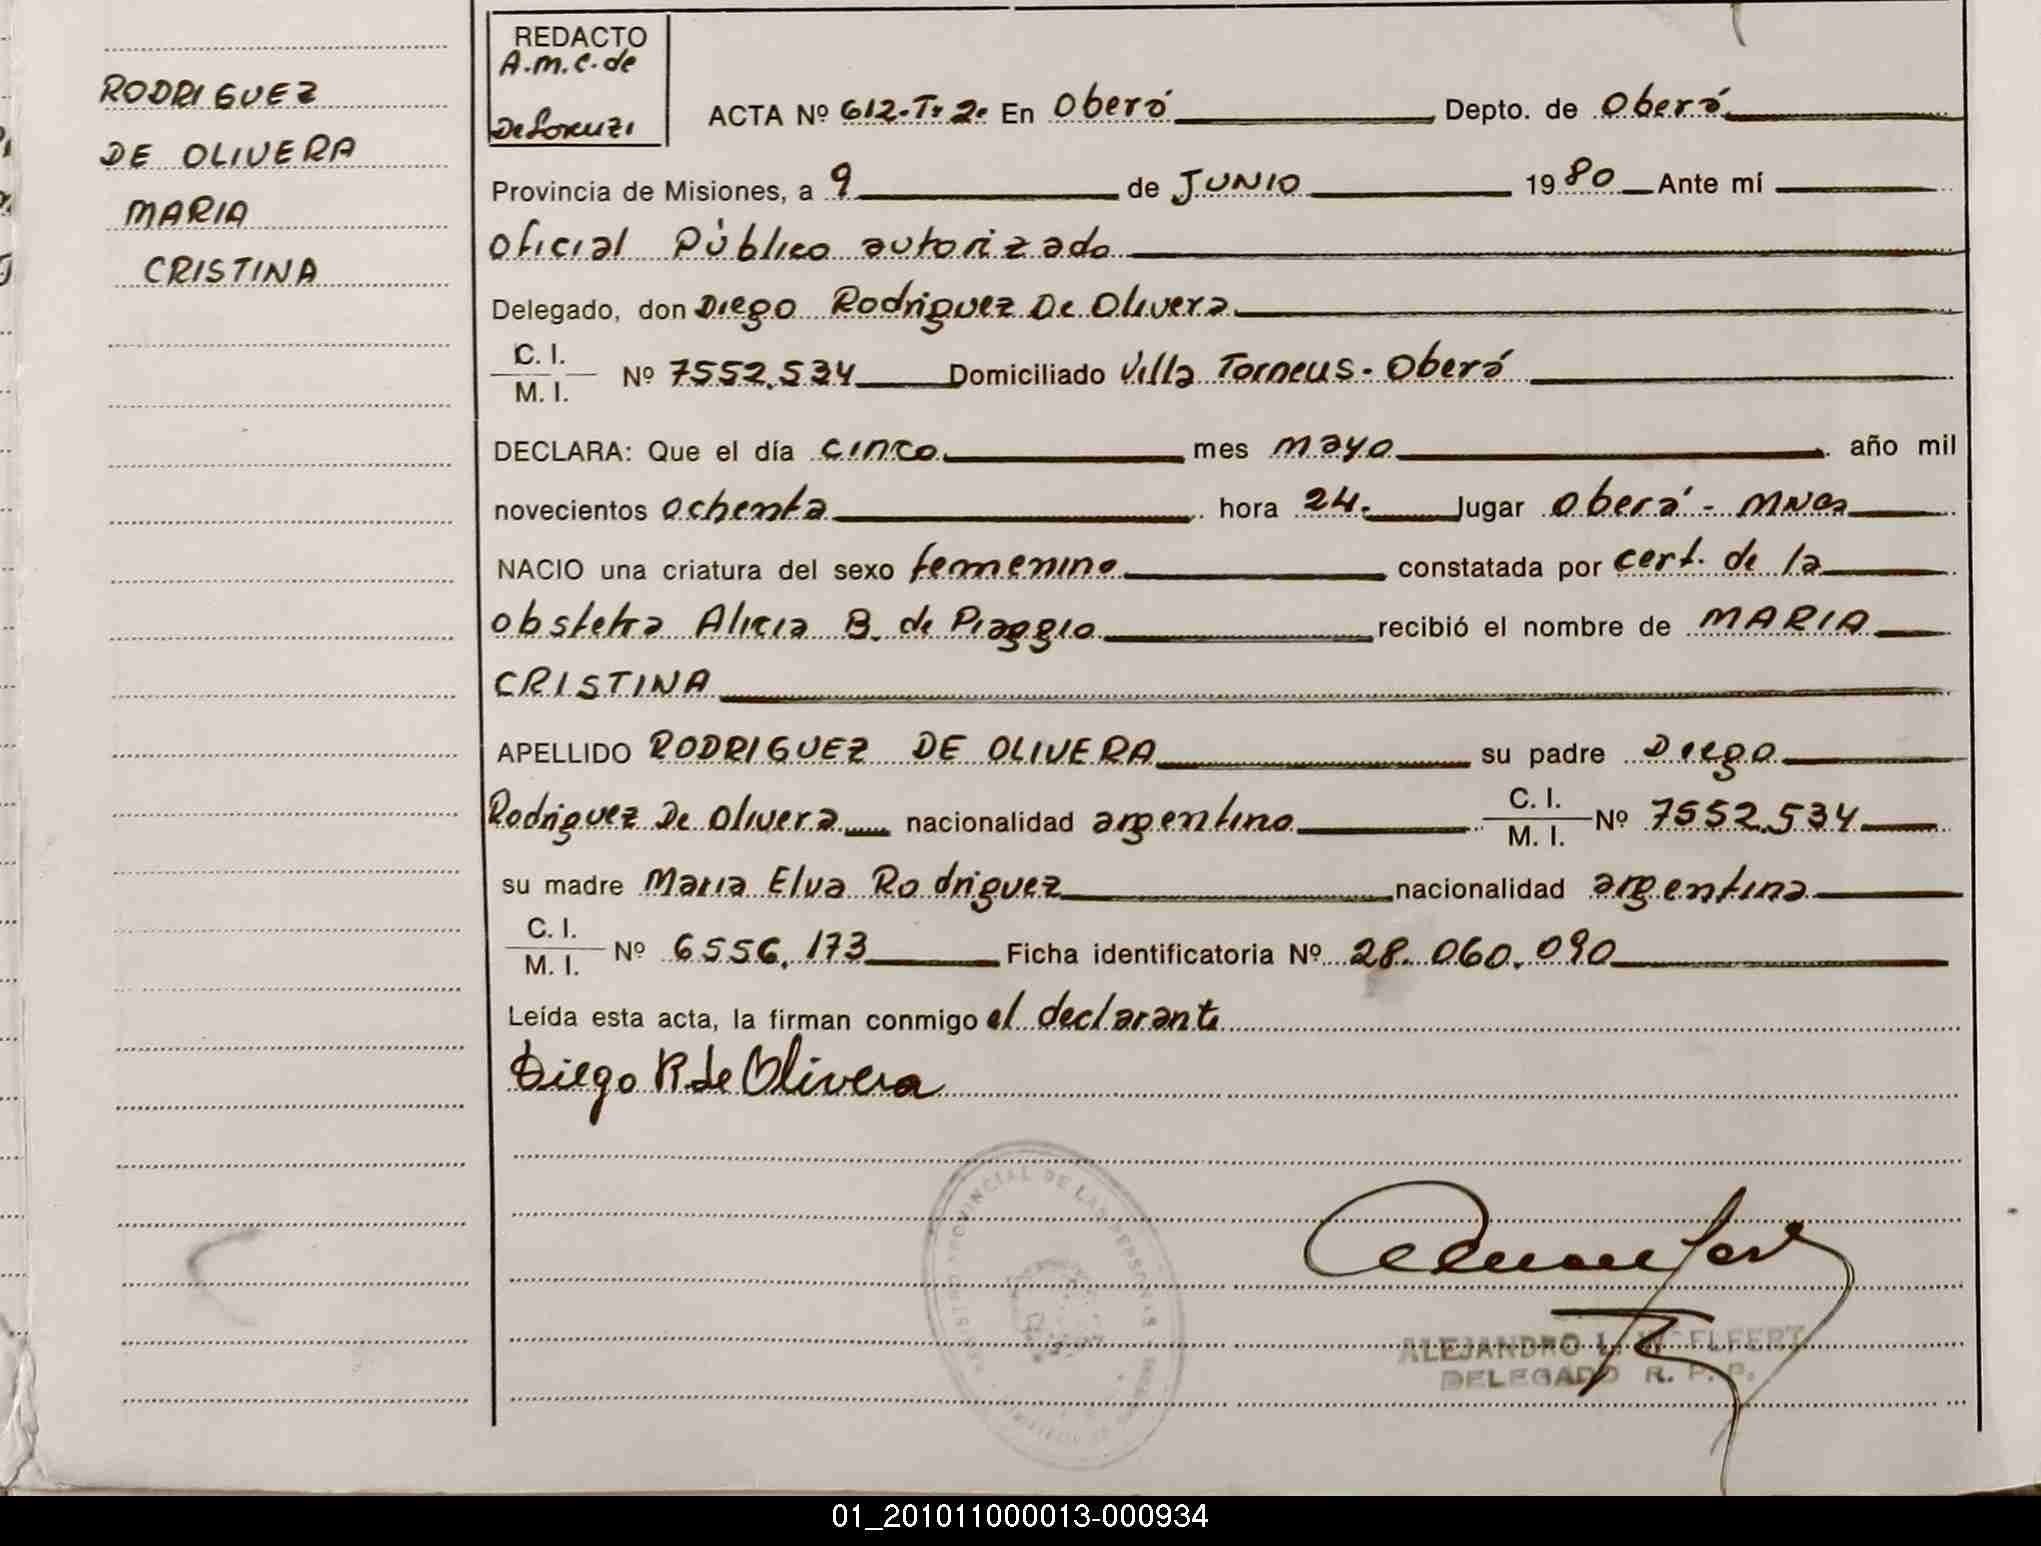 RODRIGUEZ
DE OLIVERA
MARIA
CRISTINA
REDACTO
A.M.C. de
ACTA Nº 612-Tº 2. En Oberá Depto. de Oberá
Provincia de Misiones, a 9 de JUNIO 1980 Ante mí
Oficial Público autorizado
Delegado, don Diego Rodriguez De Olivera
C. I.
M. I. Nº 7552.534 Domiciliado Villa Torneus - Oberá
DECLARA: Que el día cinco mes mayo año mil
novecientos ochenta hora 24. lugar Oberá - MNes
NACIO una criatura del sexo femenino constatada por cert. de la
obstetra Alicia B. de Piaggio recibió el nombre de MARIA
CRISTINA
APELLIDO RODRIGUEZ DE OLIVERA su padre Diego
Rodriguez De Olivera nacionalidad argentino C. I. M. I. Nº 7552.534
su madre Maria Elva Rodriguez nacionalidad argentina
C. I.
M. I. Nº 6556.173 Ficha identificatoria Nº 28.060.090
Leída esta acta, la firman conmigo el declarante
Diego R. de Olivera
REGISTRO PROVINCIAL DE LAS PERSONAS
ALEJANDRO L. WELFERT
DELEGADO R. P. P.
01_201011000013-000934